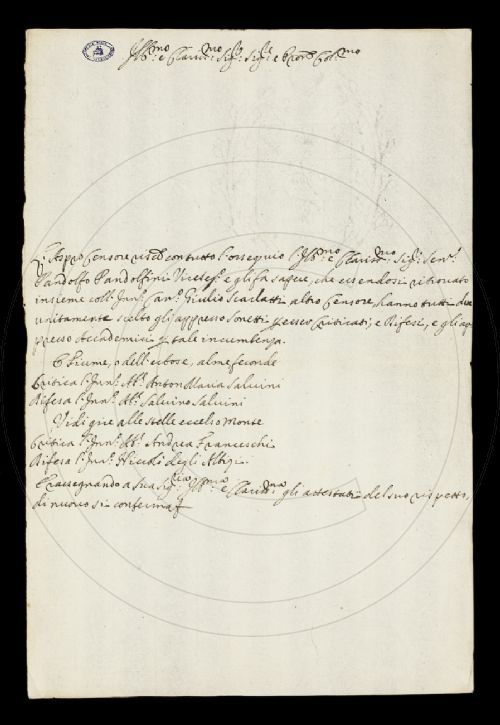 Ill.mo e Clariss.mo Sig.r Sig.re e Pron Col.mo
L'Aspro Censore con tutto l'ossequio l'Ill.mo e Clariss.mo Sig.r Sen.r
Pandolfo Pandolfini e gli fa sapere, che essendosi ritrovato
insieme coll'Inn.o Can.o Giulio Scarlatti altro Censore, hanno tutti due
unitamente scelto gli appresso Sonetti p esser Criticati, e Difesi, e gli ap-
presso Accademici p tale incumbenza.
O Fiume, o dell' alme feconde
Critica l'Inn.o Ab.e Anton Maria Salvini
Difesa l'Inn.o Ab.e Salvino Salvini
Vidi gire alle stelle eccelso Monte
Critica l'Inn.o Ab.e Andrea Franceschi
Difesa l'Inn.o Niccolò degli Albizi
E rassegnando a Sua Sig.ria Ill.ma e Clariss.ma gli attestati del suo rispetto,
di nuovo si conferma